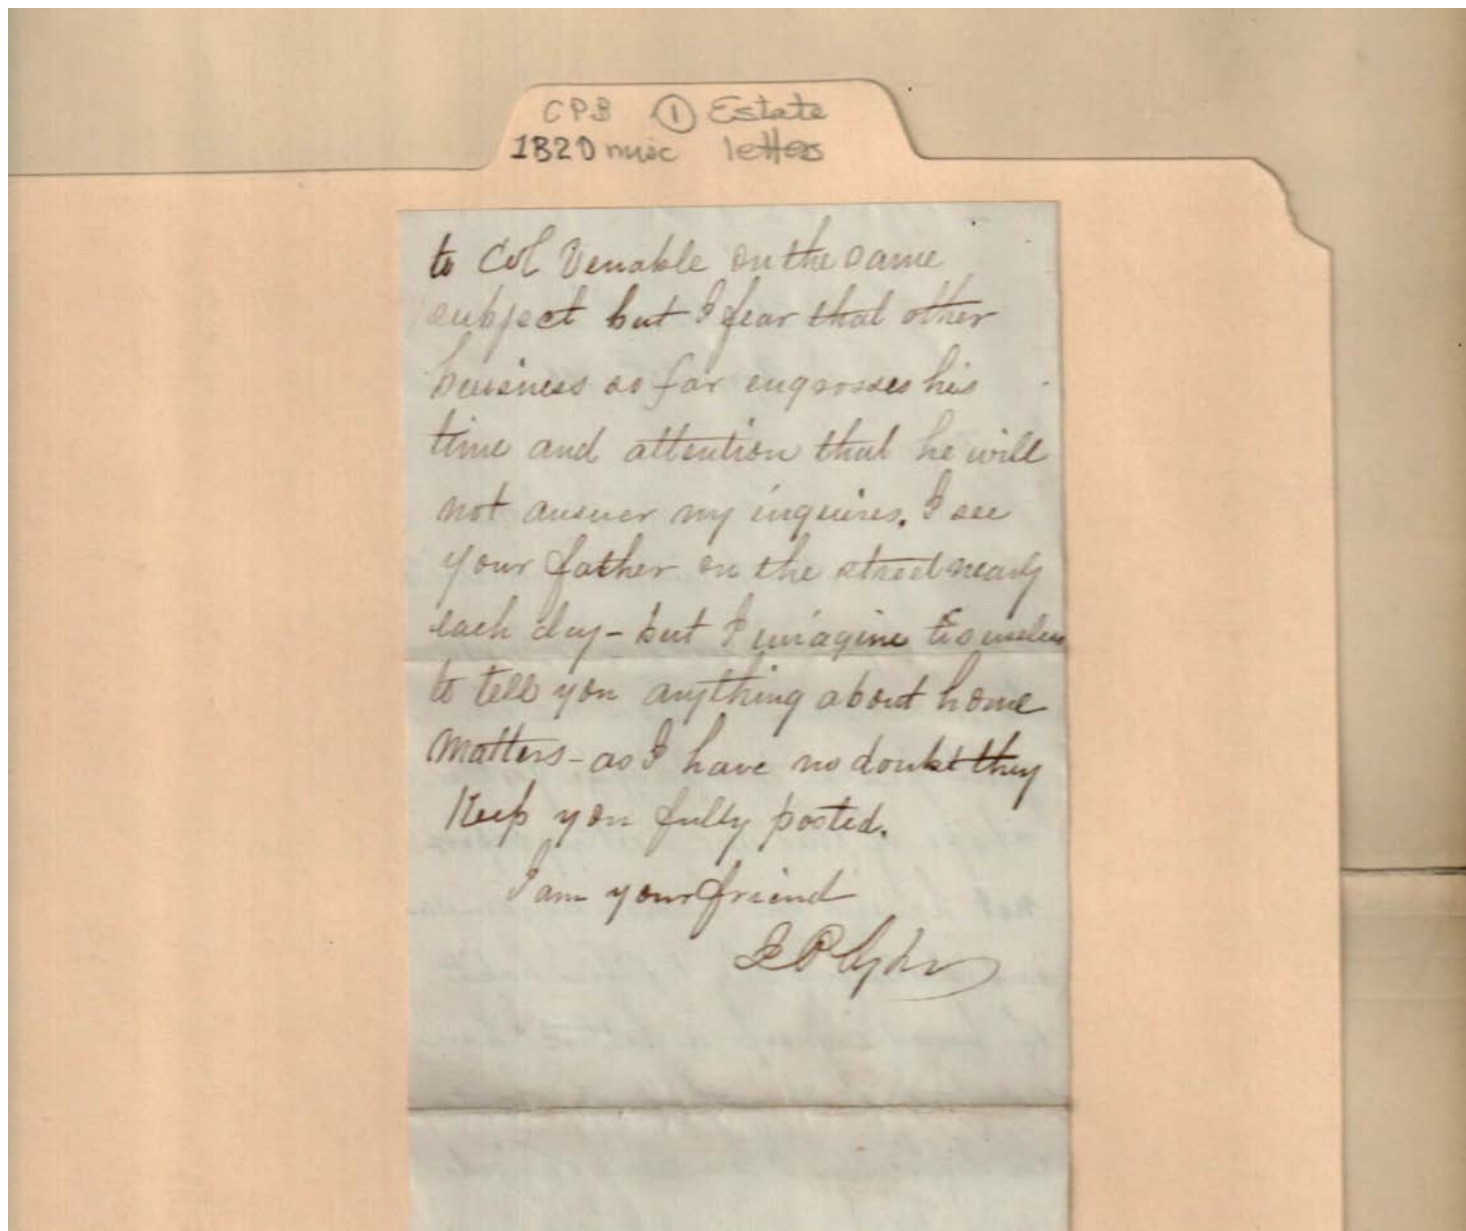 CPB ① Estate
1820 misc letters
to Col Venable on the same
subject but I fear that other
business so far engrosses his
time and attention that he will
not answer my inquires. I see
your father on the street nearly
each day - but I imagine tis useless
to tell you anything about home
matters - as I have no doubt they
Keep you fully posted.
I am your friend